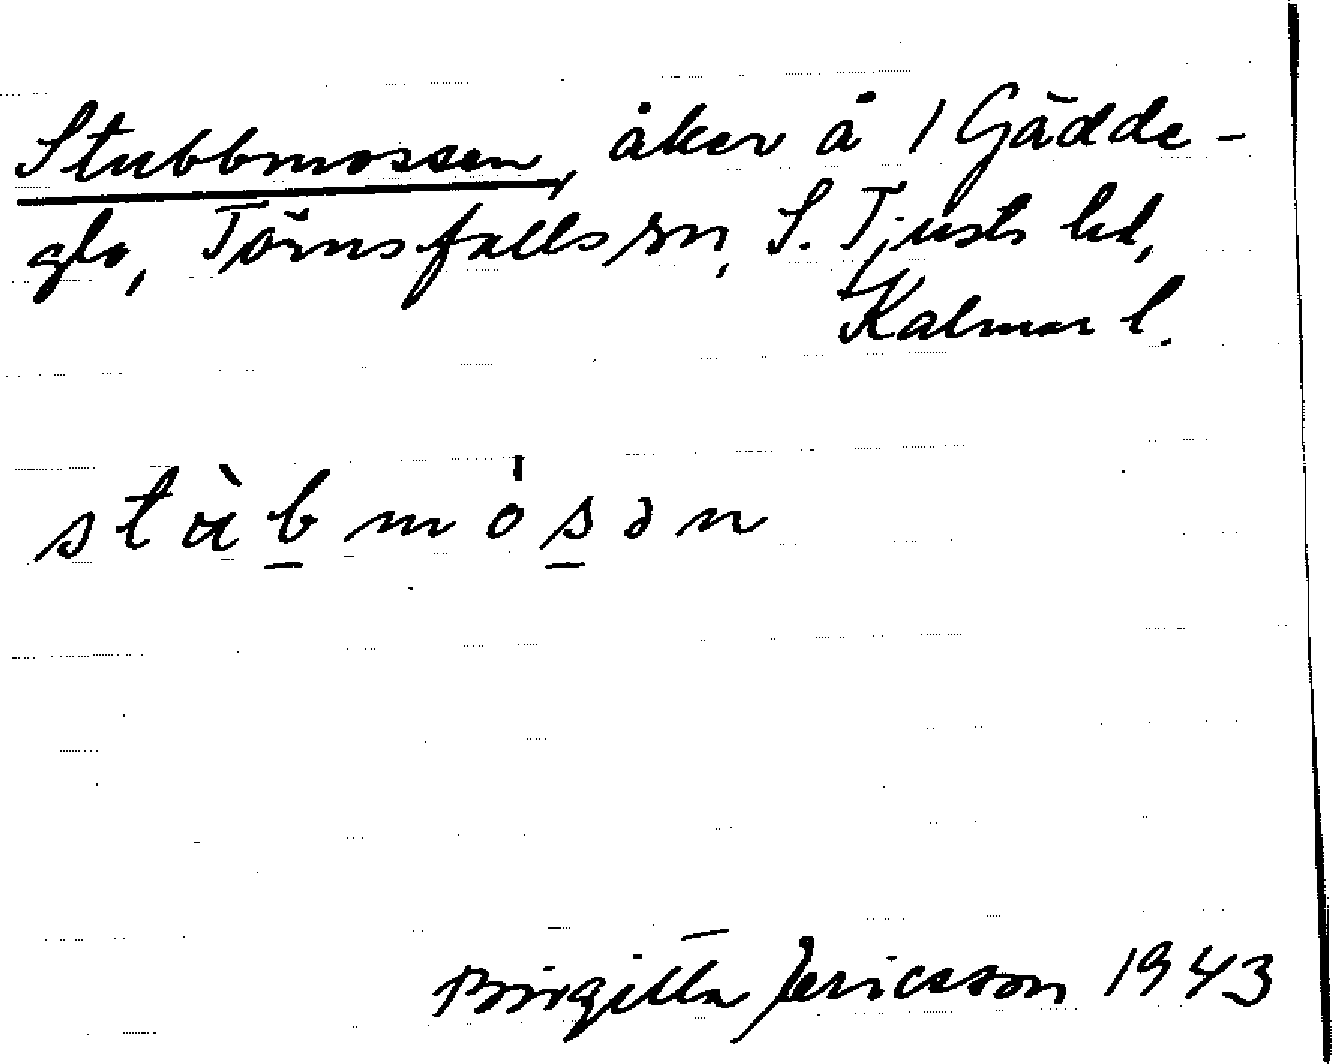 Stubbmossen, åker å 1 Gädde-
glo, Törnsfalls sn, S. Tjusts hd,
Kalmar l.
stàbmósən
Birgitta Jericsson 1943